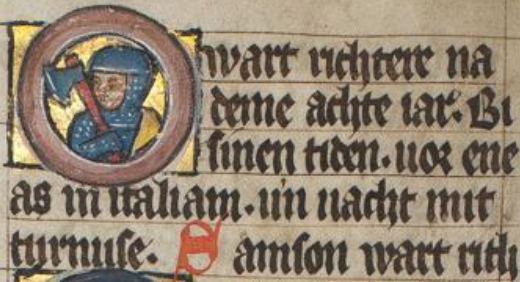 wart richtere na
deme achte iar. Bi
sinen tiden. uor ene
as in italiam. un̄ uacht mit
turnuse. Samson wart rich